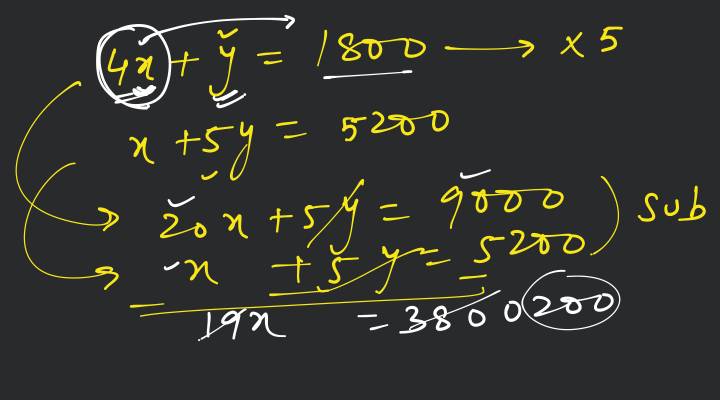 4x + y = 1800 → × 5
x + 5y = 5200
20x + 5y = 9000
x + 5y = 5200 ) sub
− − −
19x = 3800 200